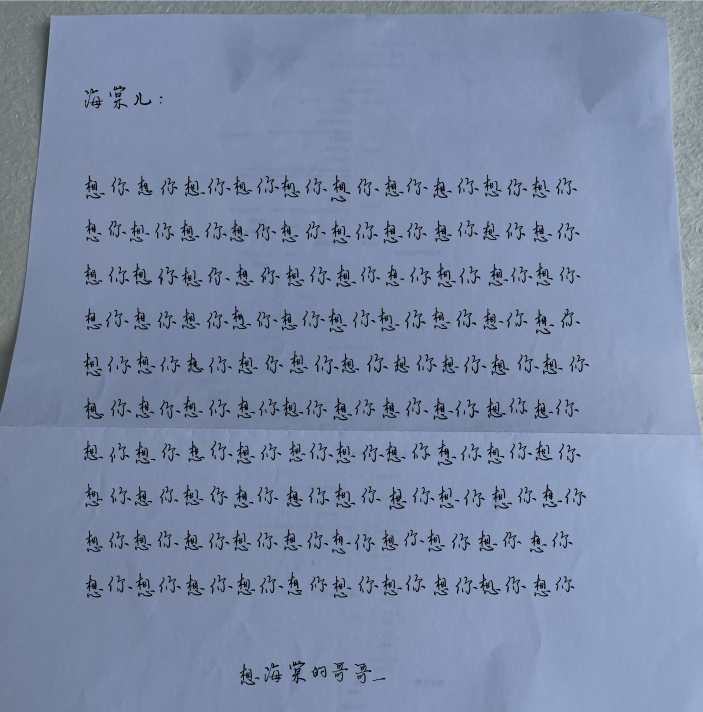 海棠儿：
想你想你想你想你想你想你想你想你想你想你
想你想你想你想你想你想你想你想你想你想你
想你想你想你想你想你想你想你想你想你想你
想你想你想你想你想你想你想你想你想你想你
想你想你想你想你想你想你想你想你想你想你
想你想你想你想你想你想你想你想你想你想你
想你想你想你想你想你想你想你想你想你想你
想你想你想你想你想你想你想你想你想你想你
想你想你想你想你想你想你想你想你想你想你
想你想你想你想你想你想你想你想你想你想你
想海棠的哥哥